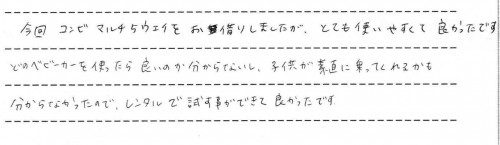 今回 コンビ マルチ5ウェイを お借りしましたが、とても使いやすくて 良かったです
どのベビーカーを使ったら 良いのか分からないし、子供が 素直に乗ってくれるかも
分からなかったので、レンタルで試す事ができて 良かったです